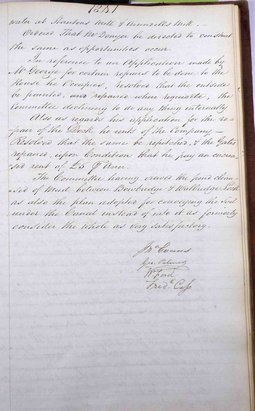 1841
water at Stantons Mill & Arundells Mill.
Ordered That Mr Dawson be directed to construct
the same as opportunities occur.
In reference to an Application made by
Mr George for certain repairs to be done to the
House he occupies, Resolved that the outside
be painted, and repaired where requisite, the
Committee declining to do any thing internally
Also as regards his application for the re-
pair of the Dock he rents of the Company—
Resolved that the same be repitched, & the Gates
repaired, upon Condition that he pay an encrea-
sed rent of £5 P Ann:
The Committee having viewed the pond clean-
sed of Mud between Bowbridge & Wallbridge Lock
as also the plan adopted for conveying the Soil
under the Canal instead of into it as formerly
consider the whole as very satisfactory.
Jno
W Ford
Fredk